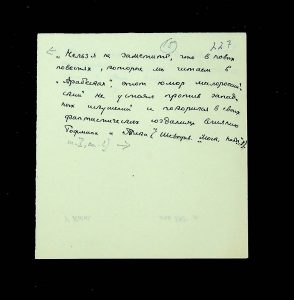 (5) 227
„Нельзя не заметить, что в новых
повестях, которые мы читаем в
„Арабесках", этот юмор малоросси-
йский не устоял против запад-
ных искушений и покорился в своих
фантастических созданиях влиянию
Гофмана и Тика" (Шевырев „Моск. набл."